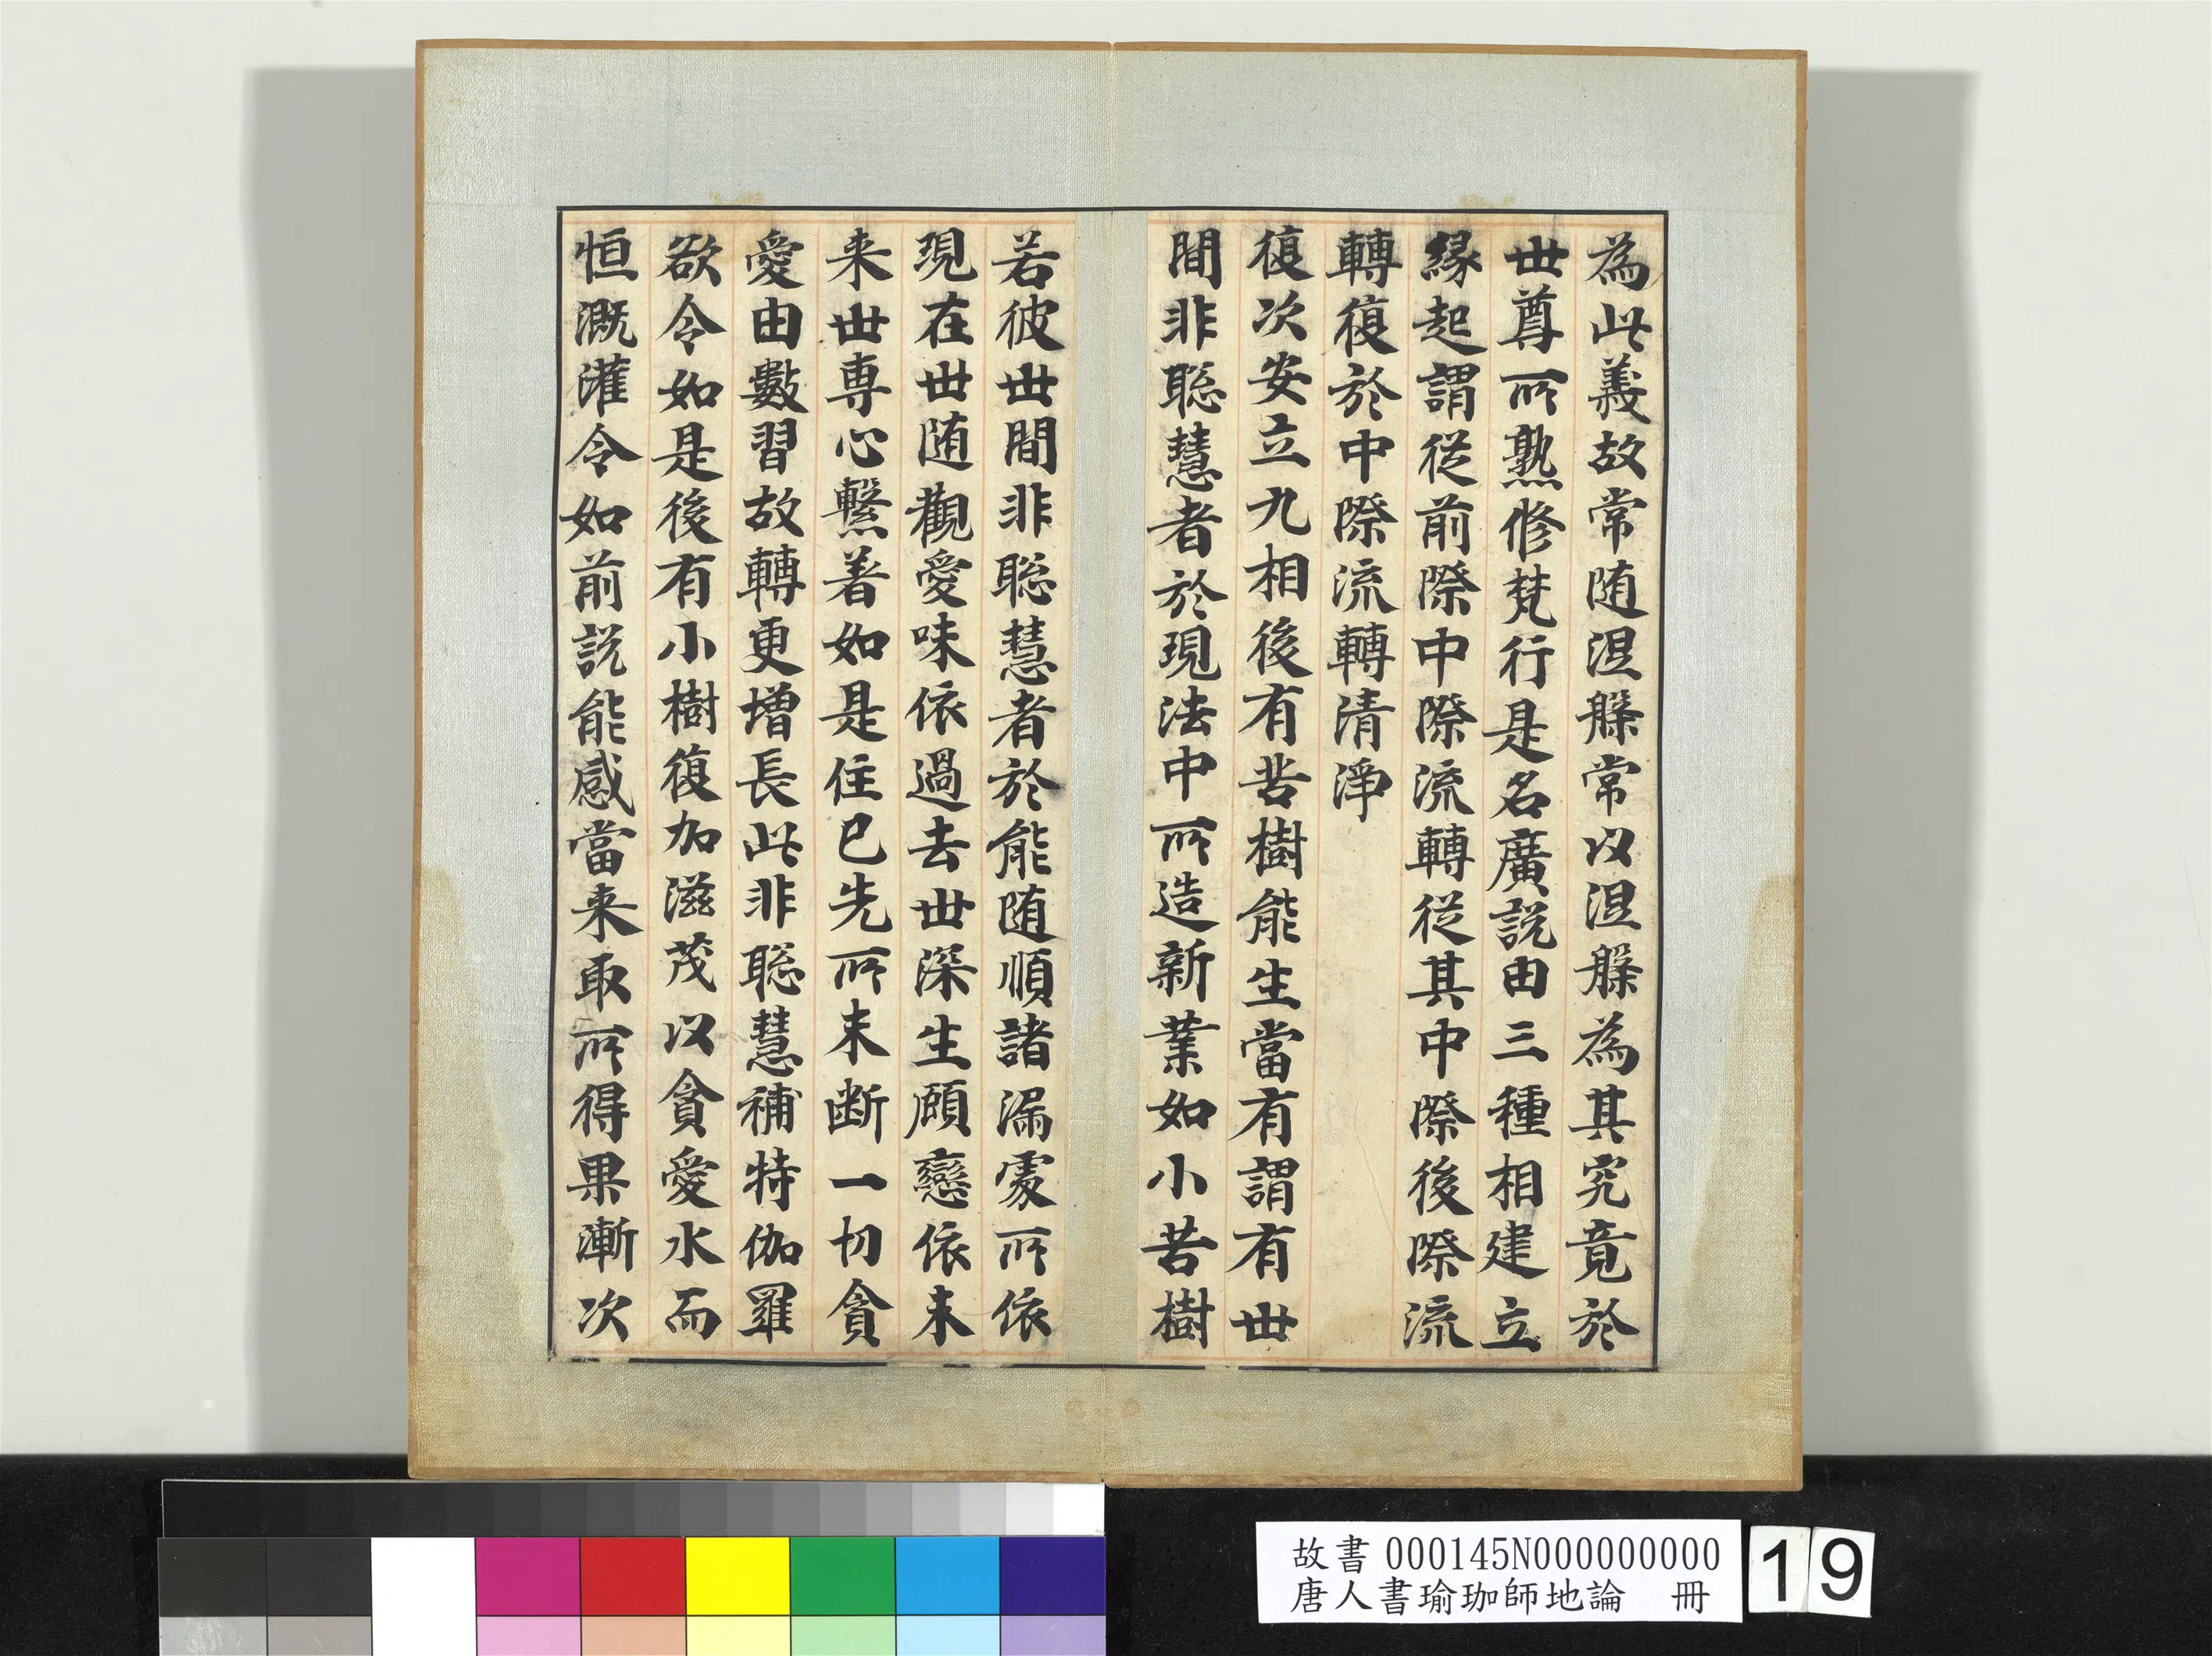 為此義故常随涅槃常以涅槃為其究竟於
世尊所熟修梵行是名廣説由三種相建立
縁起謂従前際中際流轉従其中際後際流
轉復於中際流轉清淨
復次安立九相後有苦樹能生當有謂有世
間非聡慧者於現法中所造新業如小苦樹
若彼世間非聡慧者於能随順諸漏處所依
現在世随觀愛味依過去世深生顧戀依未
来世専心繫著如是住已先所未断一切貪
愛由數習故轉更增長此非聡慧補特伽羅
欲令如是後有小樹復加滋茂以貪愛水而
恒溉灌令如前説能感當来取所得果漸次
故書 000145N000000000
唐人書瑜珈師地論 冊
19